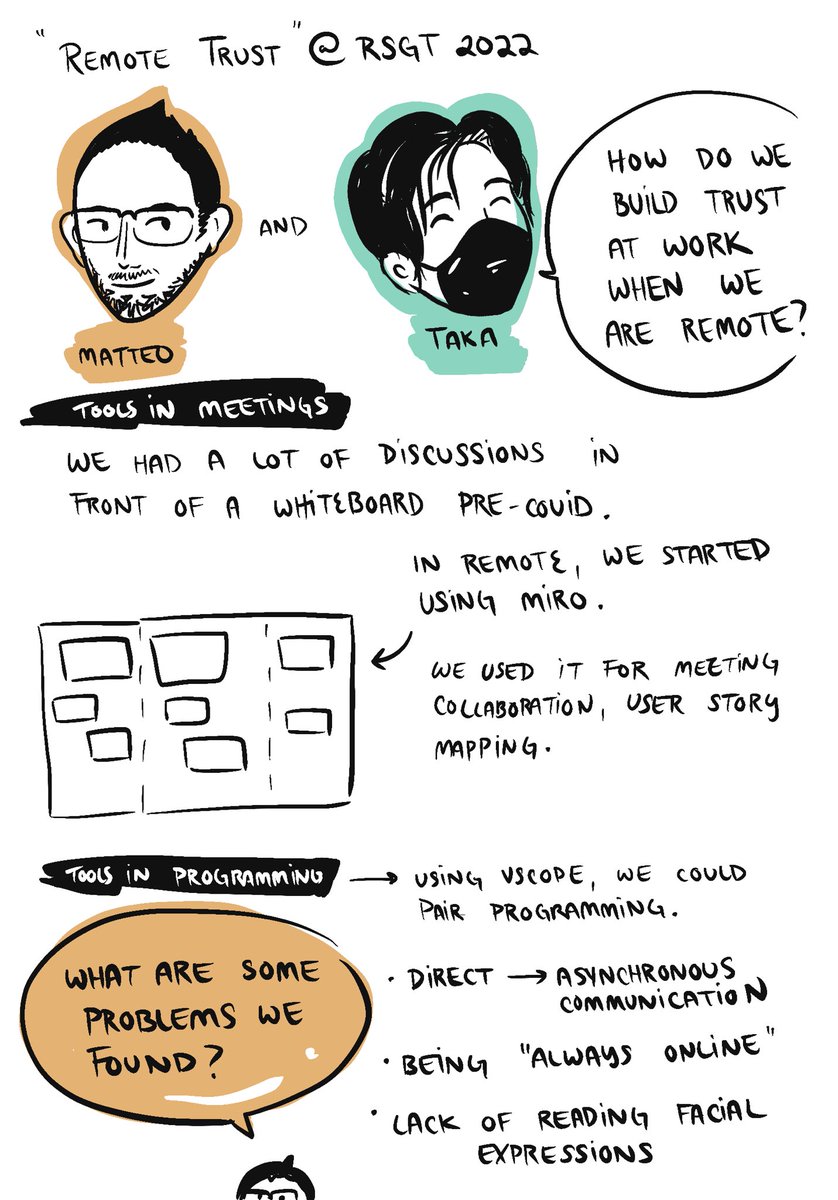 "REMOTE TRUST" @ RSGT 2022
AND
MATTEO
TAKA
HOW DO WE
BUILD TRUST
AT WORK
WHEN WE
ARE REMOTE?
TOOLS IN MEETINGS
WE HAD A LOT OF DISCUSSIONS IN
FRONT OF A WHITEBOARD PRE-COVID.
IN REMOTE, WE STARTED
USING MIRO.
WE USED IT FOR MEETING
COLLABORATION, USER STORY
MAPPING.
TOOLS IN PROGRAMMING
USING VSCOPE, WE COULD
PAIR PROGRAMMING.
WHAT ARE SOME
PROBLEMS WE
FOUND?
• DIRECT → ASYNCHRONOUS
COMMUNICATION
• BEING "ALWAYS ONLINE"
• LACK OF READING FACIAL
EXPRESSIONS